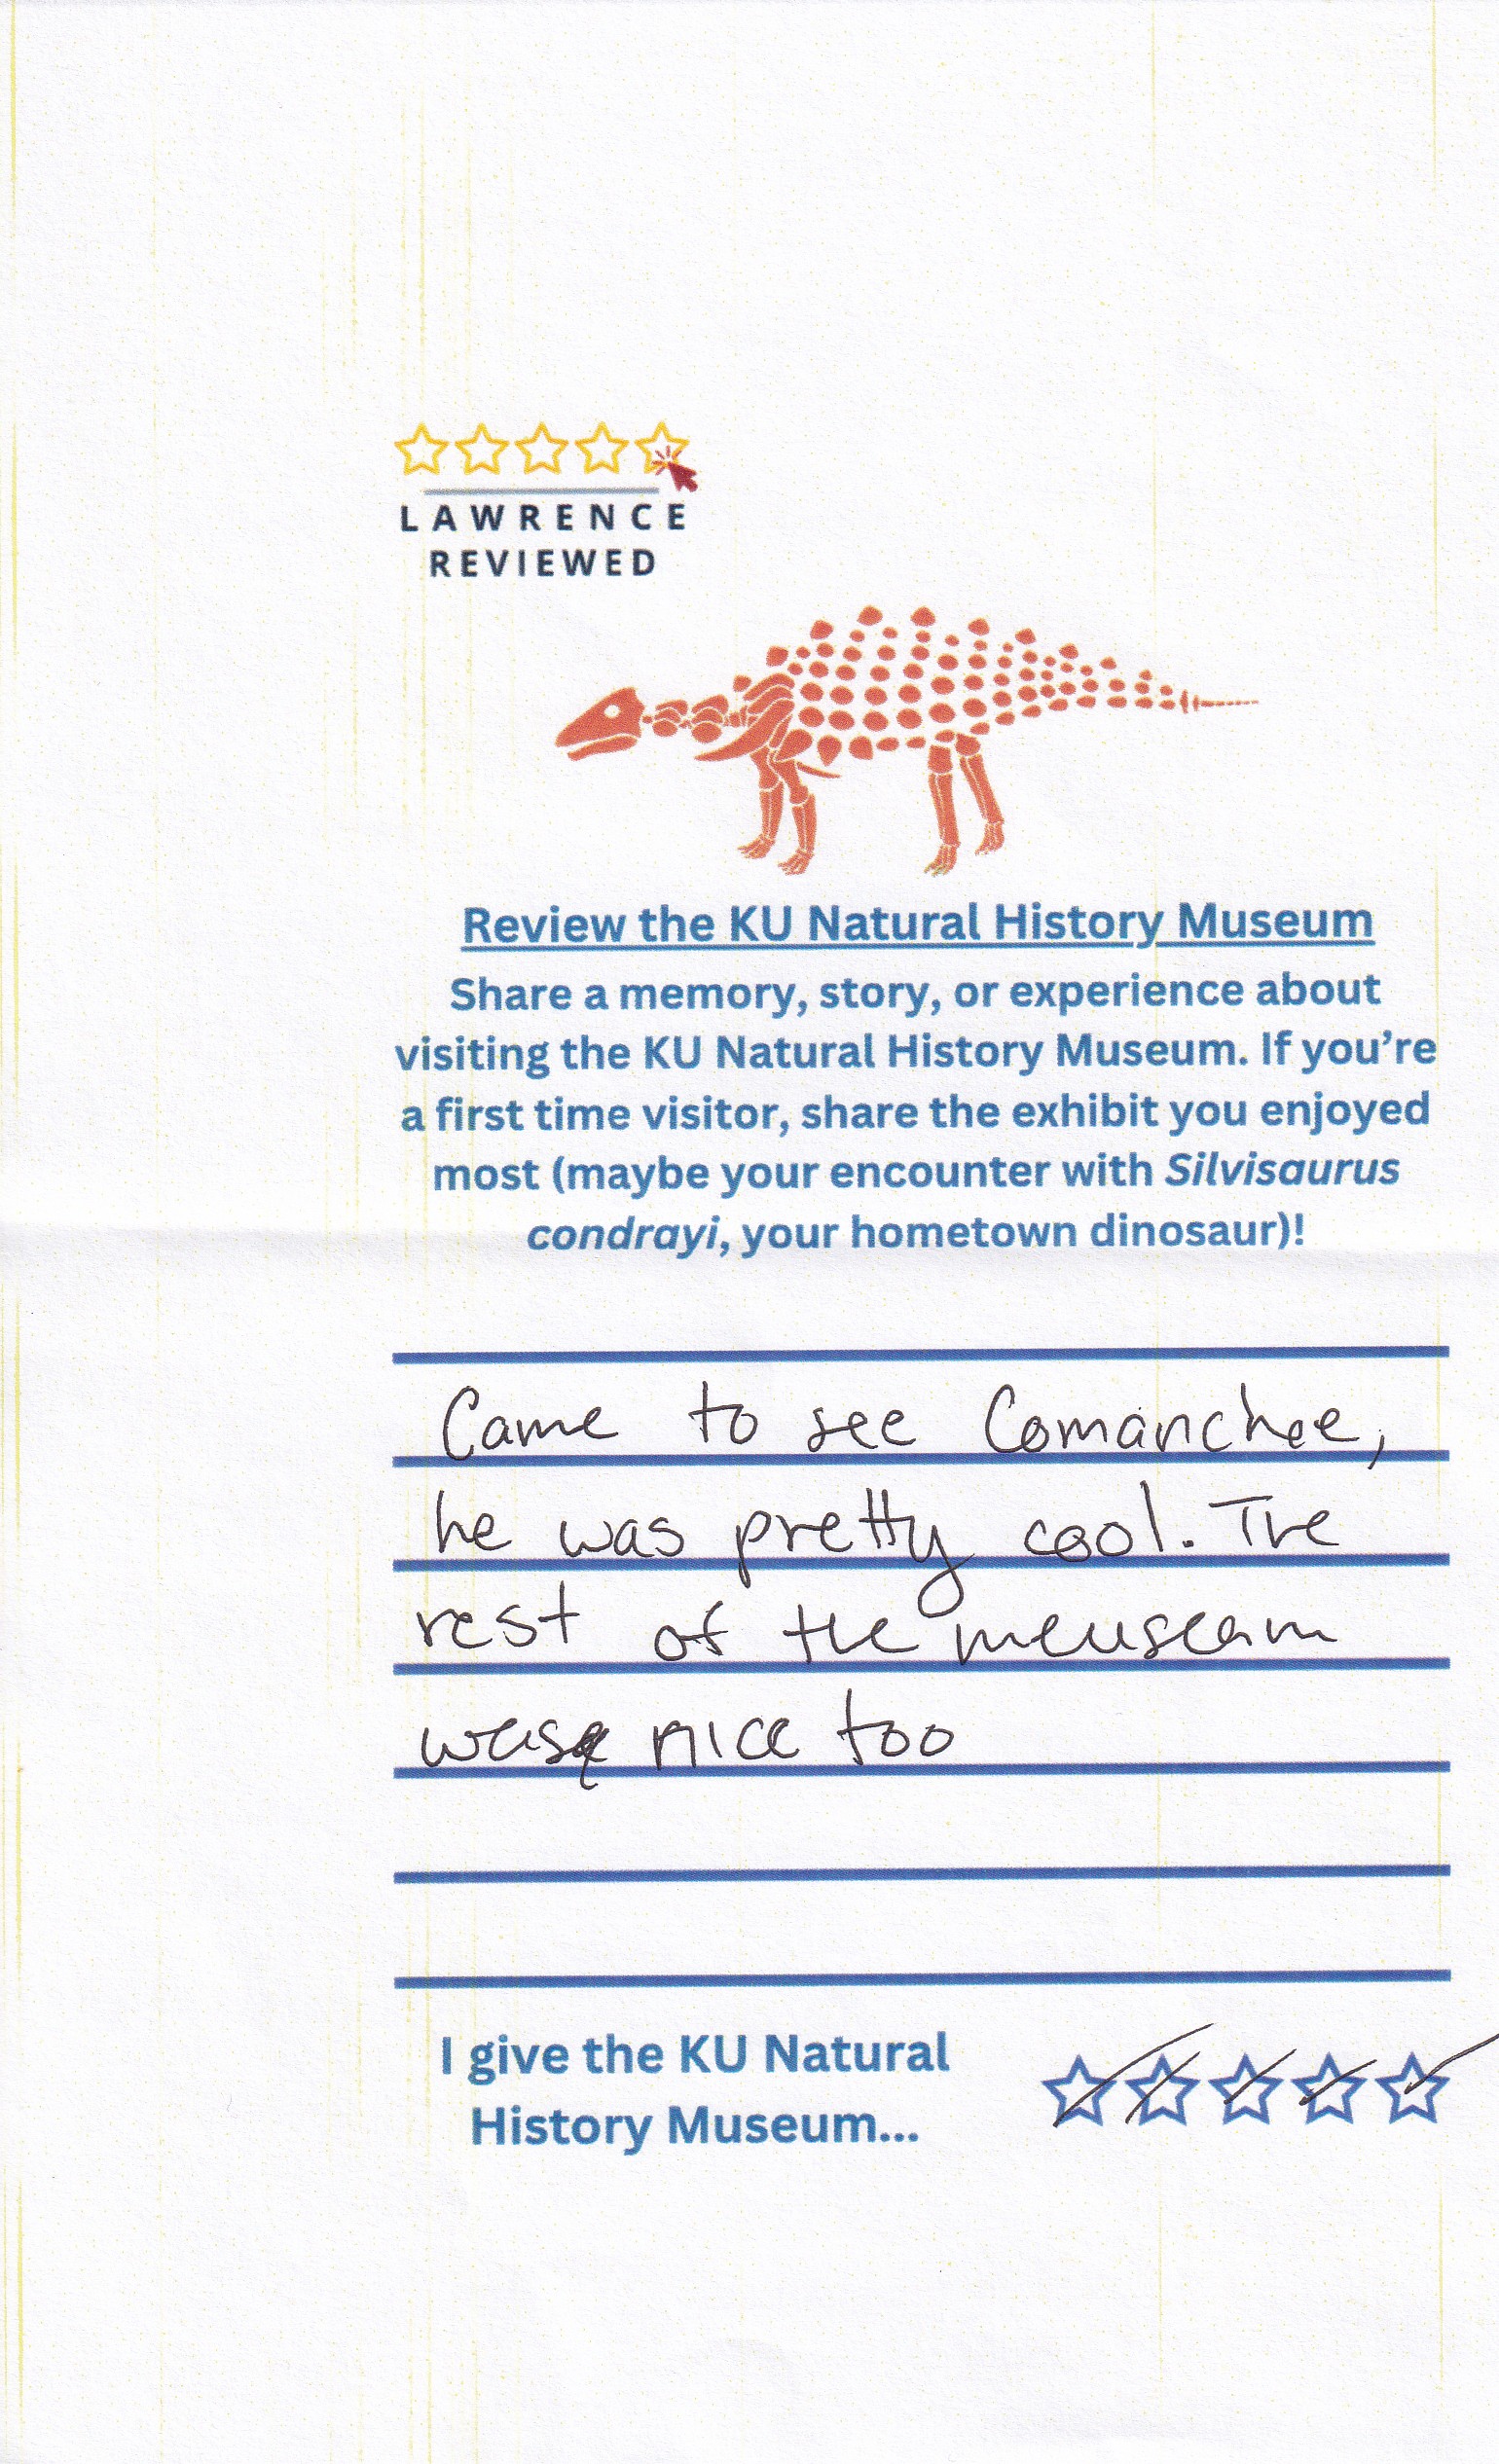 LAWRENCE
REVIEWED
Review the KU Natural History Museum
Share a memory, story, or experience about
visiting the KU Natural History Museum. If you're
a first time visitor, share the exhibit you enjoyed
most (maybe your encounter with Silvisaurus
condrayi, your hometown dinosaur)!
Came to see Comanchee,
he was pretty cool. The
rest of the meuseam
was nice too
I give the KU Natural
History Museum...